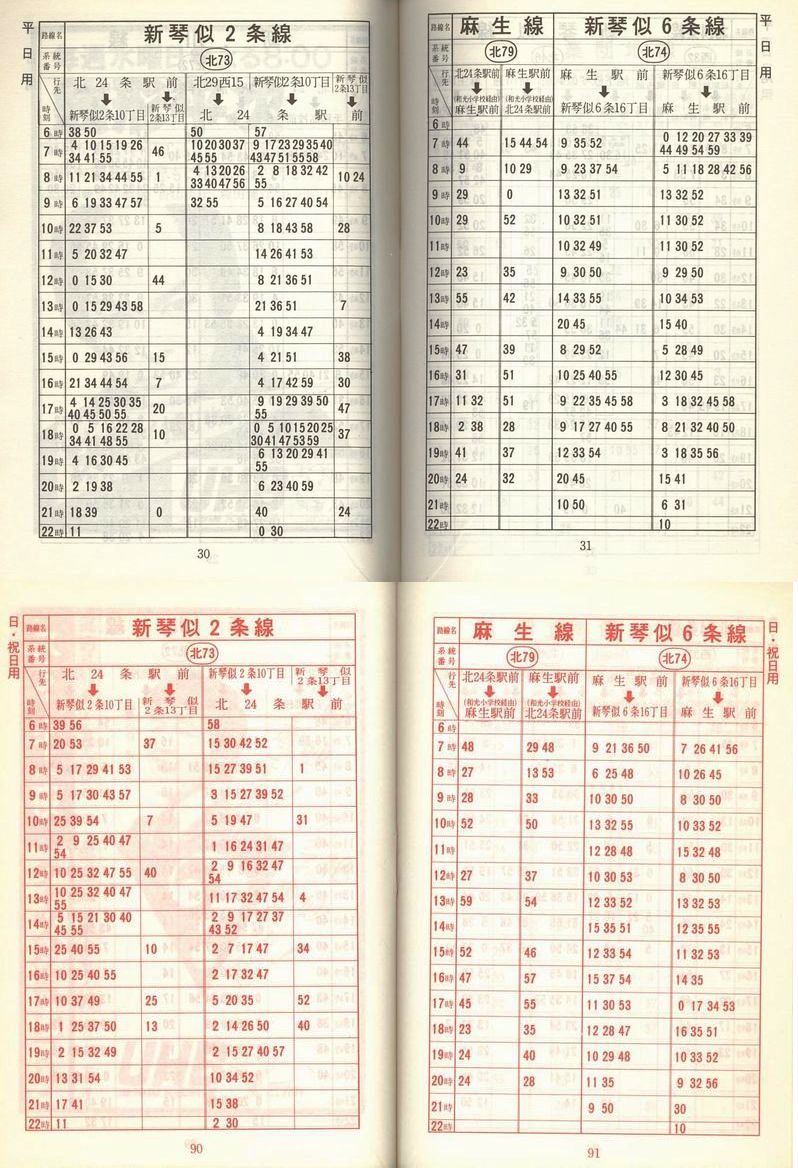 平日用
路線名 新琴似2条線
系統番号 北73
行先 時刻
北24条駅前 北29西15 新琴似2条10丁目 新琴似2条13丁目
新琴似2条10丁目 新琴似2条13丁目 北24条駅前
6時 38 50 50 57
7時 4 10 15 19 26 34 41 55 46 10 20 30 37 45 55 9 17 23 29 35 40 43 47 51 55 58
8時 11 21 34 44 55 1 4 13 20 26 33 40 47 56 2 8 18 32 42 55 10 24
9時 6 19 33 47 57 32 55 5 16 27 40 54
10時 22 37 53 5 8 18 43 58 28
11時 5 20 32 47 14 26 41 53
12時 0 15 30 44 8 21 36 51
13時 0 15 29 43 58 21 36 51 7
14時 13 26 43 4 19 34 47
15時 0 29 43 56 15 4 21 51 38
16時 21 34 44 54 7 4 17 42 59 30
17時 4 14 25 30 35 40 45 50 55 20 9 19 29 39 50 55 47
18時 0 5 16 22 28 34 41 48 55 10 0 5 10 15 20 25 30 41 47 53 59 37
19時 4 16 30 45 6 13 20 29 41 55
20時 2 19 38 6 23 40 59
21時 18 39 0 40 24
22時 11 0 30
30
平日用
路線名 麻生線 新琴似6条線
系統番号 北79 北74
行先 時刻
北24条駅前 麻生駅前 麻生駅前 新琴似6条16丁目
(和光小学校経由) (和光小学校経由)
麻生駅前 北24条駅前 新琴似6条16丁目 麻生駅前
6時
7時 44 15 44 54 9 35 52 0 12 20 27 33 39 44 49 54 59
8時 9 10 29 9 23 37 54 5 11 18 28 42 56
9時 29 0 13 32 51 13 32 52
10時 29 52 10 32 51 11 30 52
11時 10 32 49 11 30 52
12時 23 35 9 30 50 9 29 50
13時 55 42 14 33 55 10 34 53
14時 20 45 15 40
15時 47 39 8 29 52 5 28 49
16時 31 51 10 25 40 55 12 30 45
17時 11 32 51 9 22 35 45 58 3 18 32 45 58
18時 2 38 28 9 17 27 40 55 8 21 32 40 50
19時 41 37 12 33 54 3 18 35 56
20時 24 32 20 45 15 41
21時 10 50 6 31
22時 10
31
日・祝日用
路線名 新琴似2条線
系統番号 北73
行先 時刻
北24条駅前 新琴似2条10丁目 新琴似2条13丁目
新琴似2条10丁目 新琴似2条13丁目 北24条駅前
6時 39 56 58
7時 20 53 37 15 30 42 52
8時 5 17 29 41 53 15 27 39 51 1
9時 5 17 30 43 57 3 15 27 39 52
10時 25 39 54 7 5 19 47 31
11時 2 9 25 40 47 54 1 16 24 31 47
12時 10 25 32 47 55 40 2 9 16 32 47 54
13時 10 25 32 40 47 55 11 17 32 47 54 4
14時 5 15 21 30 40 45 55 2 9 17 27 37 43 52
15時 25 40 55 10 2 7 17 47 34
16時 10 25 40 55 2 17 32 47
17時 10 37 49 25 5 20 35 52
18時 1 25 37 50 13 2 14 26 50 40
19時 2 15 32 49 2 15 27 40 57
20時 13 31 54 10 34 52
21時 17 41 15 38
22時 11 2 30
90
日・祝日用
路線名 麻生線 新琴似6条線
系統番号 北79 北74
行先 時刻
北24条駅前 麻生駅前 麻生駅前 新琴似6条16丁目
(和光小学校経由) (和光小学校経由)
麻生駅前 北24条駅前 新琴似6条16丁目 麻生駅前
6時
7時 48 29 48 9 21 36 50 7 26 41 56
8時 27 13 53 6 25 48 10 26 45
9時 28 33 10 30 50 8 30 50
10時 52 50 13 32 55 10 33 52
11時 12 28 48 15 32 48
12時 27 37 10 30 53 8 30 50
13時 59 54 12 33 52 13 32 53
14時 15 35 51 12 35 55
15時 52 46 12 33 54 11 32 53
16時 47 57 15 37 54 14 35
17時 45 55 11 30 53 0 17 34 53
18時 23 35 12 28 47 16 35 51
19時 24 40 10 29 48 10 33 52
20時 24 28 11 35 9 32 56
21時 9 50 30
22時 10
91